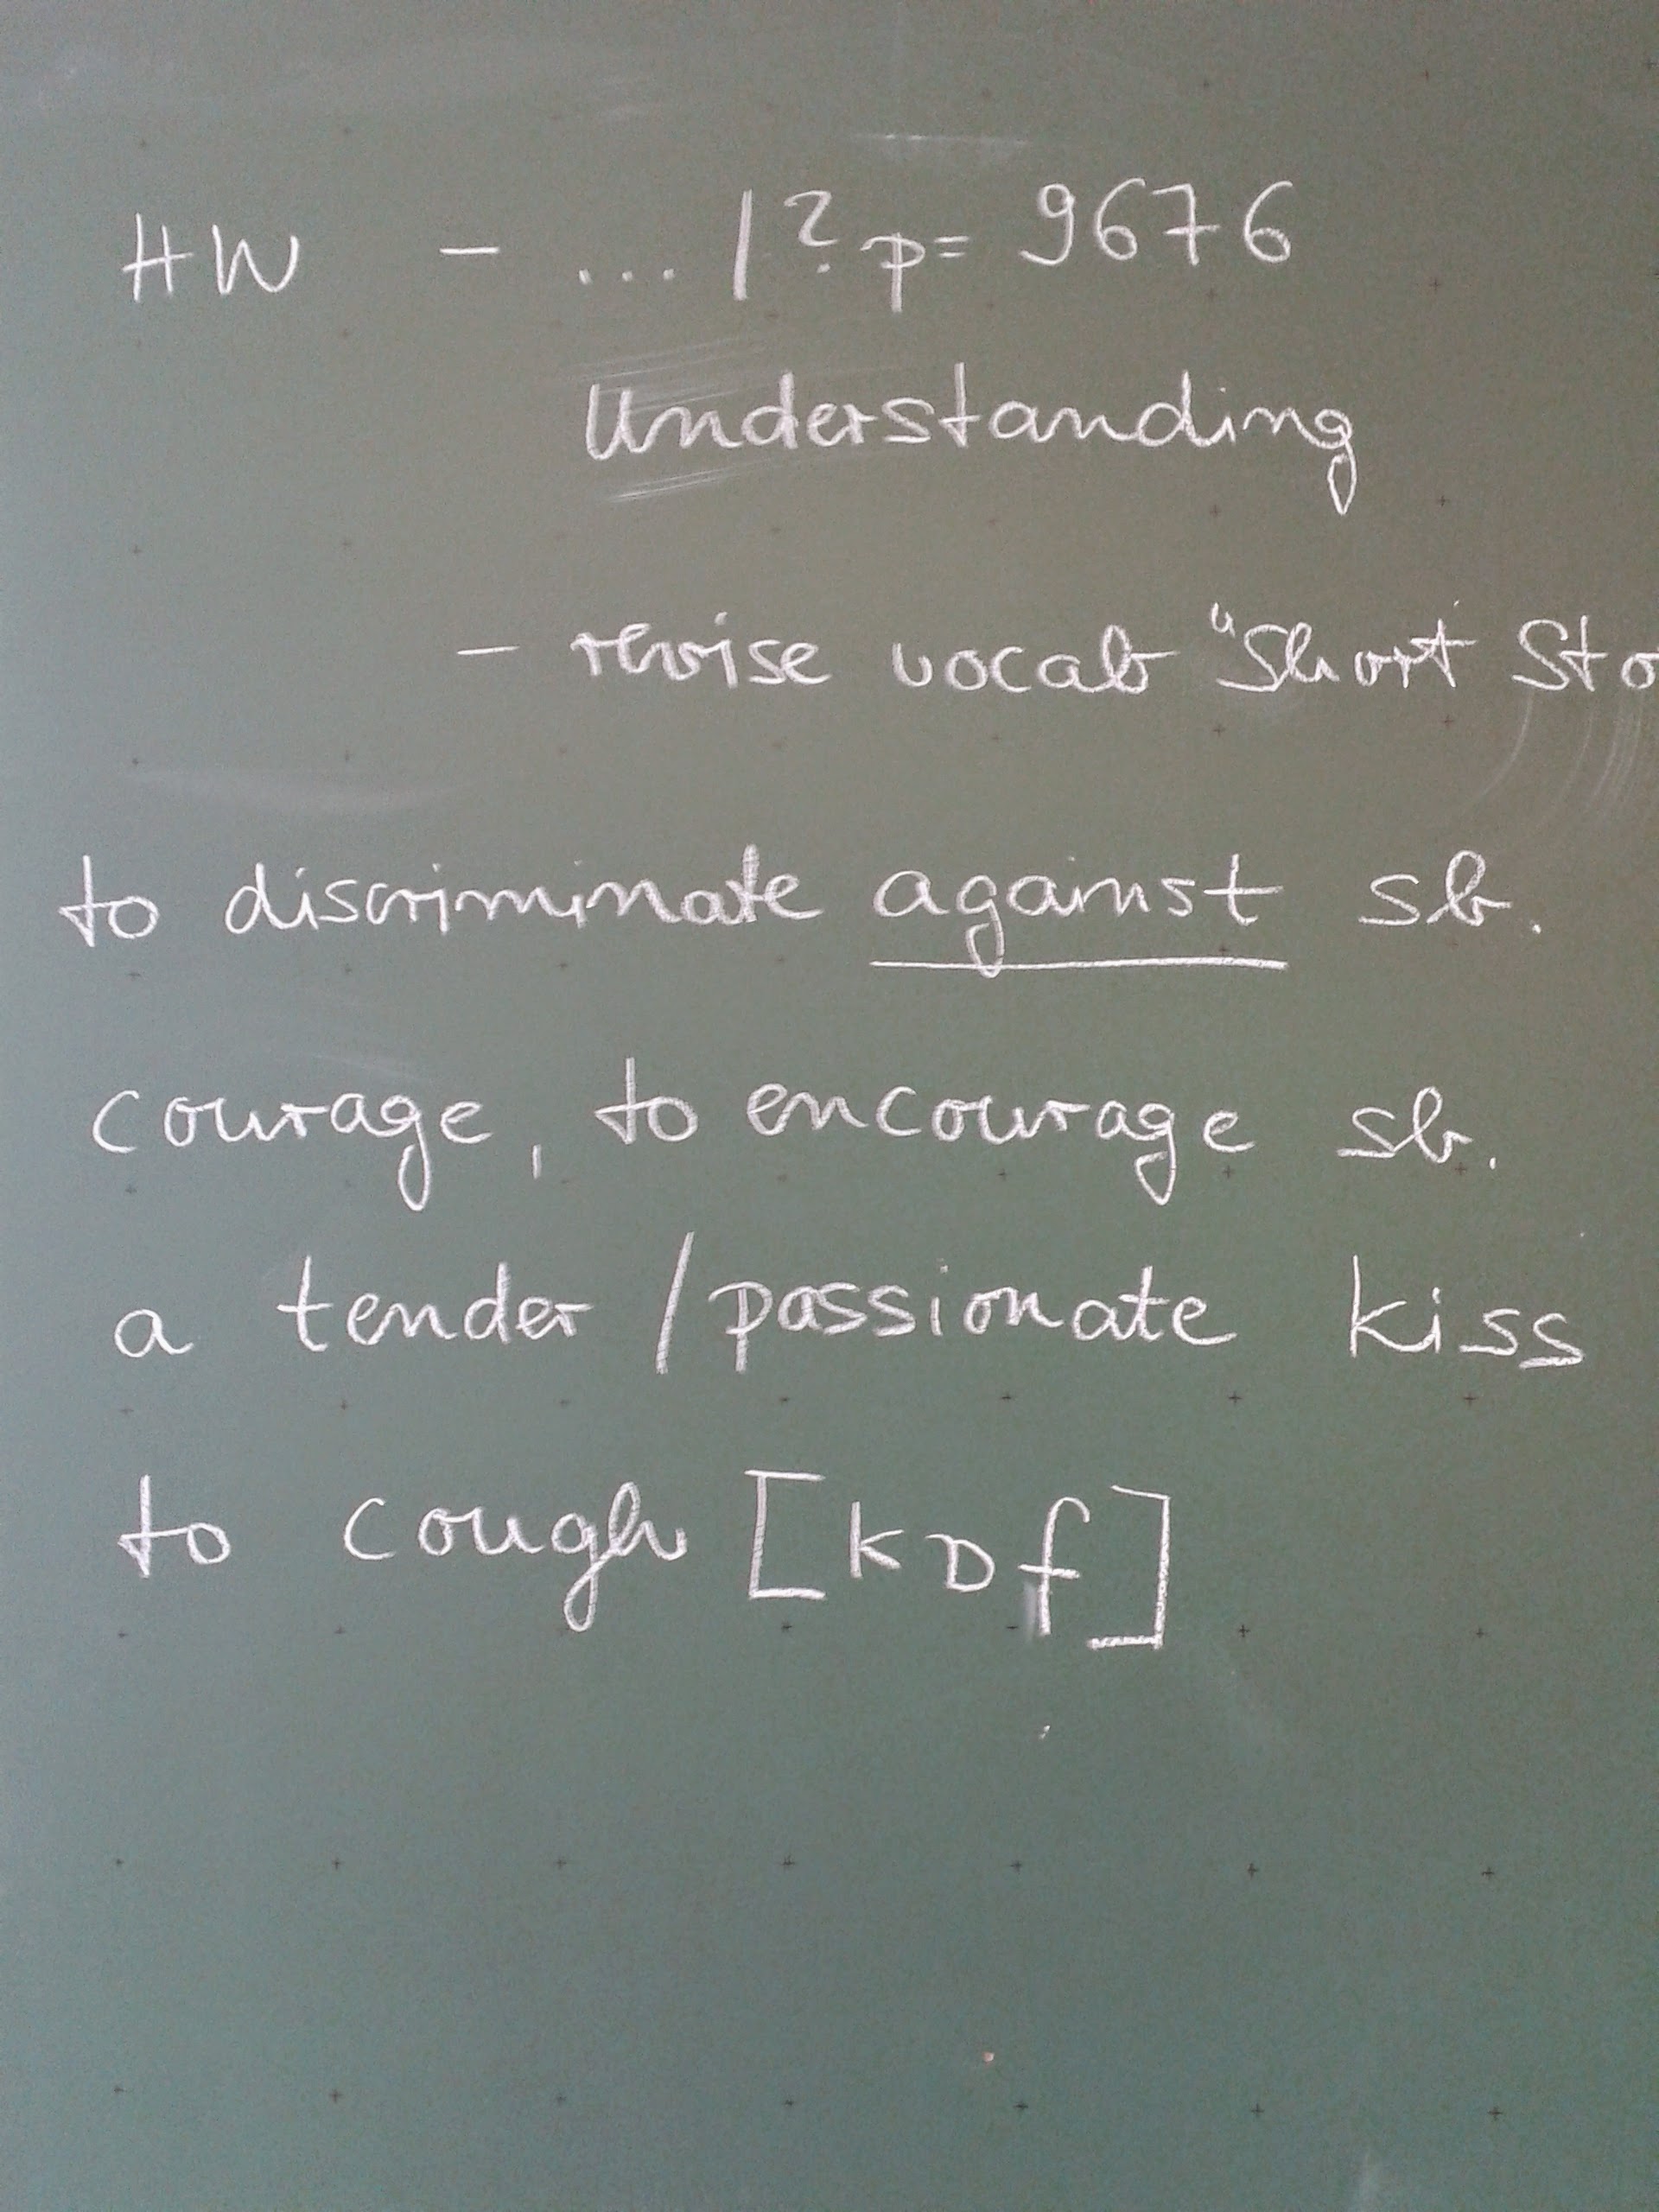 HW - ... /?p= 9676
Understanding
- revise vocab "Short Sto
to discriminate against sb.
courage, to encourage sb.
a tender / passionate kiss
to cough [kɒf]